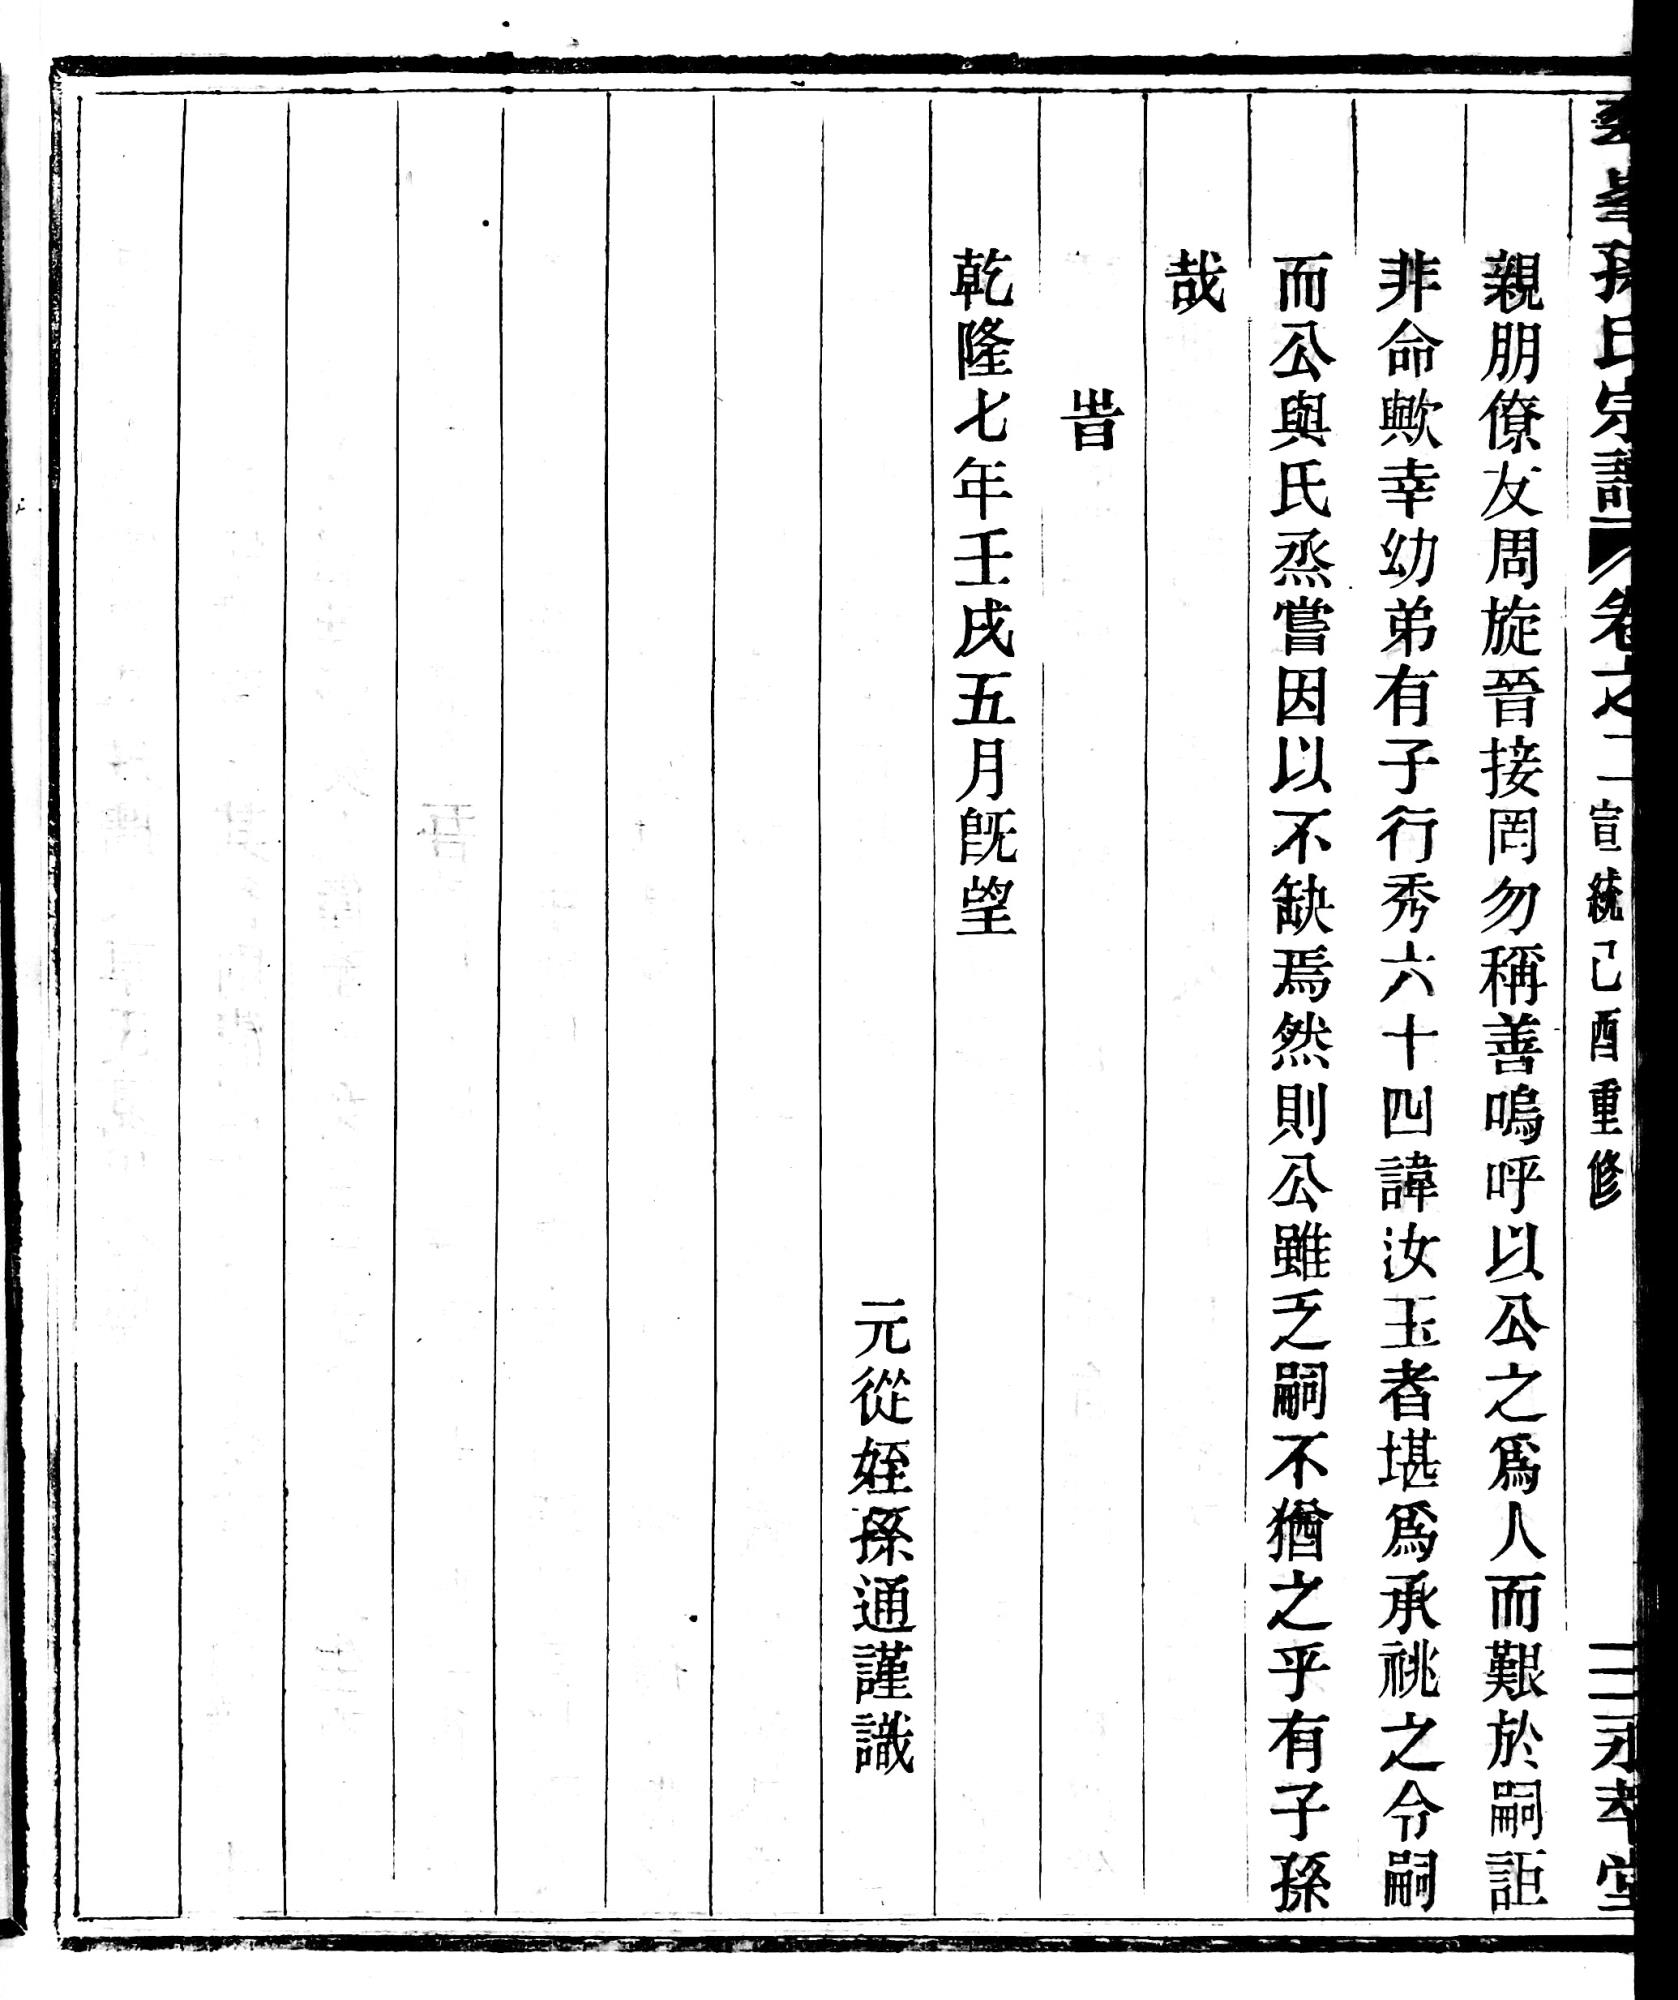 孫氏宗譜 卷之二 宣統己酉重修 三 永孝堂
親朋僚友周旋晉接罔勿稱善嗚呼以公之爲人而艱於嗣詎
非命歟幸幼弟有子行秀六十四諱汝玉者堪爲承祧之令嗣
而公與氏烝嘗因以不缺焉然則公雖乏嗣不猶之乎有子孫
哉
旹
乾隆七年壬戌五月旣望
元從姪孫通謹識